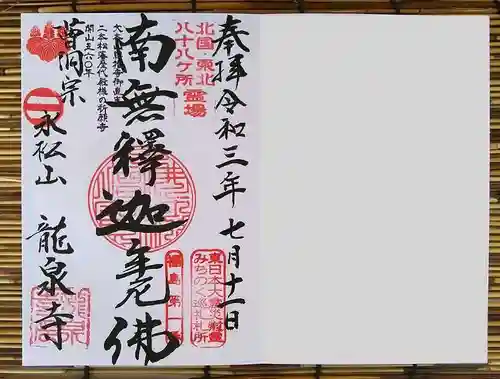 奉拝 令和三年 七月十一日
北国・東北
八十八ケ所
霊場
東日本大震災慰霊
みちのく巡礼札所
福島第一番
南無釋迦牟尼佛
二本松藩歴代殿様の祈願寺
開山五六〇年
曹洞宗
永松山 龍泉寺